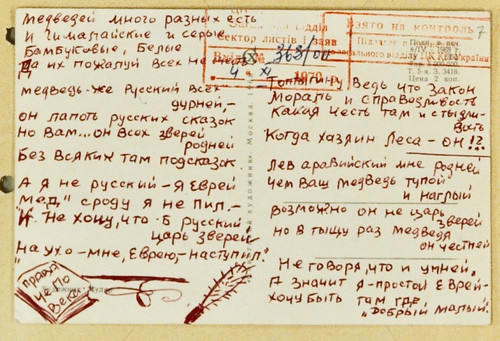 Медведей много разных есть
и гималайские и серые
Бамбуковые, Белые
Да их пожалуй всех не
медведь-же Русский всех
дурней,-
он лапоть русских сказок
Но вам...он всех зверей
родней
Без всяких там подсказок
А я не русский-я еврей
мёд" сроду я не пил.-
И не хочу, что б русский
царь зверей
"на ухо-мне, Еврею-наступил"
ПРАВА
ЧЕЛО
ВЕКА
відділ
сектор листів і заяв
363/00
4 X
1970 р.
Взято на контроль
7
Підлягає
ЦК КП України
Цена 2 коп.
Топтыгину ведь что закон
Мораль и справедливость
какая честь там и стыдли-
вость
Когда хозяин леса-он!?
Лев аравийский мне родней
чем ваш медведь тупой
и наглый
возможно он не царь
зверей
но в тыщу раз медведя
он честней
Не говоря, что и умней.
А значит я-простой еврей-
хочу быть там где
"добрый малый".